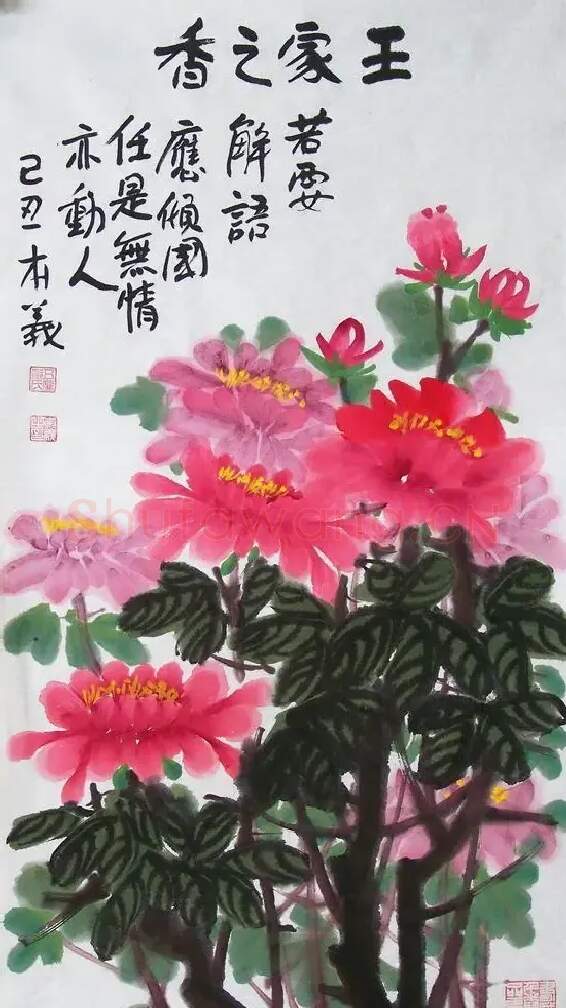 王家之香
若要
解語
應傾國
任是無情
亦動人
己丑本義